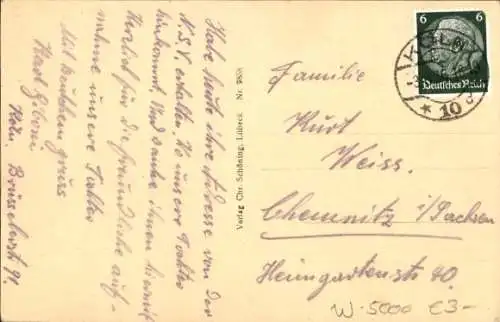 Habe heute ihre Adresse von der
N.S.V. erhalten. Wo unsere Tochter
hinkommt, Und danke ihnen hiermit
Herzlich für die freundliche auf-
nahme unsere Tochter
Mit deutschem gruss
Karl
Köln, Brüsselerst 91.
Verlag Chr. Schöning, Lübeck Nr.
6 6
KÖLN
Deutsches Reich
* 10
Familie
Kurt
Weiss.
Chemnitz i/Sachsen
Heimgartenstr 40.
W-5000 €3-